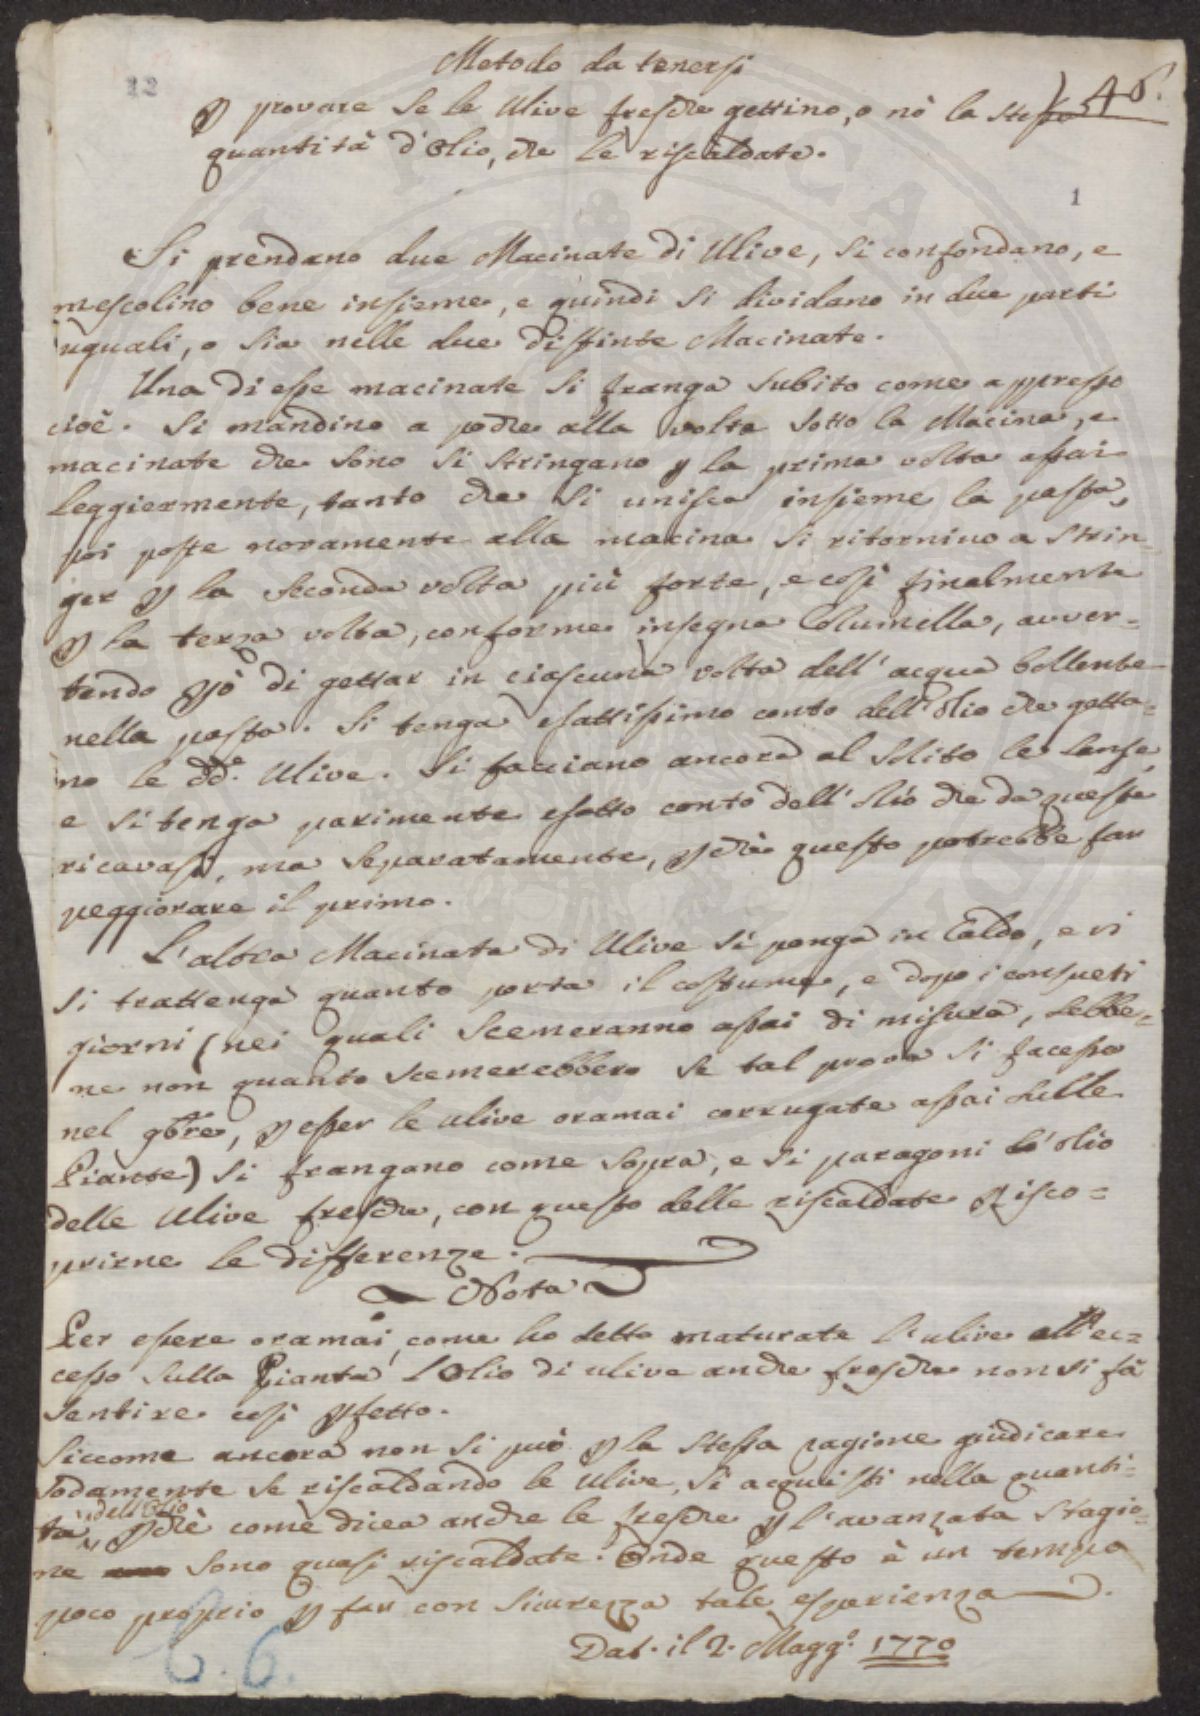 12
Metodo da tenersi
p provare se le Ulive fresche gettino, o nò la stessa
46.
quantità d'Olio, che le riscaldate.
1
Si prendano due Macinate di Ulive, si confondano, e
mescolino bene insieme, e quindi si dividano in due parti
uguali, o sia nelle due distinte Macinate.
Una di esse macinate si franga subito come appresso
cioè. Si mandino a poche alla volta sotto la Macina, e
macinate che sono si stringano p la prima volta assai
leggiermente, tanto che si unisca insieme la pasta,
poi poste novamente alla macina si ritornino a strin-
ger p la seconda volta più forte, e così finalmente
p la terza volta, conforme insegna Columella, avver-
tendo pò di gettar in ciascuna volta dell'acqua bollente
nella pasta. Si tenga esattissimo conto dell'olio che getta-
no le dde. Ulive. Si facciano ancora al solito le lense,
e si tenga parimente esatto conto dell'olio che da queste
ricavasi, ma separatamente, pchè questo potrebbe far
peggiorare il primo.
L'altra Macinata di Ulive si ponga in Caldo, e vi
si trattenga quanto porta il costume, e dopo i consueti
giorni (nei quali scemeranno assai di misura, sebbe-
ne non quanto scemerebbero se tal prova si facesse
nel 9bre, p esser le ulive oramai corrugate assai sulle
Piante) si frangano come sopra, e si paragoni l'olio
delle Ulive fresche, con questo delle riscaldate p isco=
prirne le differenze.
Nota
Per essere oramai, come ho detto maturate l'ulive all'ec=
cesso sulla Pianta l'Olio di ulive anche fresche non si fà
sentire così pfetto.
Siccome ancora non si può p la stessa ragione giudicare
sodamente se riscaldando le Ulive, si acquisti nella quanti-
dell'Olio
tà, pchè come dicea anche le fresche p l'avanzata stagio-
ne sono quasi riscaldate. Onde questo è un tempo
poco proprio p far con sicurezza tale esperienza.
Dat. il 2. Maggo. 1770
C. 6.